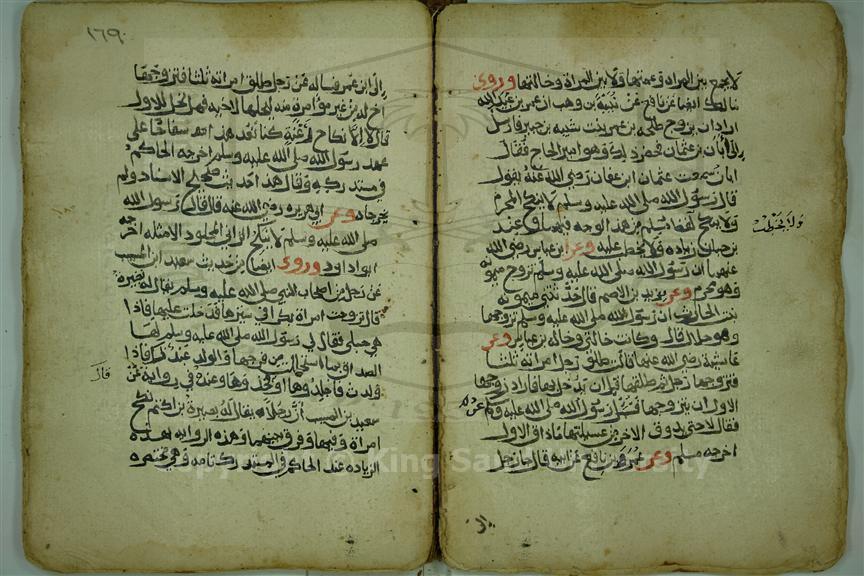 لا يجمع بين المراة وعمتها ولا بين المراة وخالتها وروى
مالك ايضا عن نافع عن نبيه بن وهب ان عمر بن عبيد الله
اراد ان يزوج طلحه بن عمر بنت شيبه بن جبير فارسل
الى ابان بن عثمان فحضر ذلك وهو امير الحاج فقال
ابان سمعت عثمان ابن عفان رضي الله عنه يقول
قال رسول الله صلى الله عليه وسلم لا ينكح المحرم
ولا ينكح مسلم من هذا الوجه وعند
ولا يخطب
بن حبان زياده ولا يخطب عليه وعن ابن عباس رضي الله
عنهما ان رسول الله صلى الله عليه وسلم تزوج ميمونه
وهو محرم وعن يزيد بن الاصم قال حدثتني ميمونه
بنت الحارث ان رسول الله صلى الله عليه وسلم تزوجها
وهو حلال قال وكانت خالتي وخالة بن عباس وعن
عائشة رضي الله عنها قالت طلق رجل امراته ثلثا
فتزوجها رجل ثم طلقها قبل ان يدخل بها فاراد زوجها
الاول ان يتزوجها فسئل رسول الله صلى الله عليه وسلم عن ذلك
فقال لا حتى يذوق الاخر من عسيلتها ما ذاق الاول
اخرجه مسلم وعن عمر بن نافع عن ابيه قال جا رجل
الى
١٦٩
الى ابن عمر فساله عن رجل طلق امراته ثلثا فتزوجها
اخ له من غير مؤامرة منه ليحلها لاخيه فهل تحل للاول
قال لا الا نكاح رغبة كنا نعد هذا سفاحا على
عهد رسول الله صلى الله عليه وسلم اخرجه الحاكم
في مستدركه وقال هذا حديث صحيح الاسناد ولم
يخرجاه وعن ابي هريره رضي الله عنه قال قال رسول الله
صلى الله عليه وسلم لا ينكح الزاني المجلود الا مثله اخرجه
ابو داود وروى ايضا من حديث سعيد ابن المسيب
عن رجل من اصحاب النبي صلى الله عليه وسلم يقال له بصره
قال تزوجت امراة بكرا في سترها فدخلت عليها فاذا
هي حبلى فقال لي رسول الله صلى الله عليه وسلم لها
الصداق بما استحللت من فرجها والولد عبد لك فاذا
ولدت فاجلدوها او فحدوها وعنده في رواية عن
قال
سعيد بن المسيب ان رجلا يقال له بصرة بن اكثم نكح
امراة وفيها وفرق بينهما وهذه الرواية بهذه
الزياده عند الحاكم في المستدرك
King Saud University